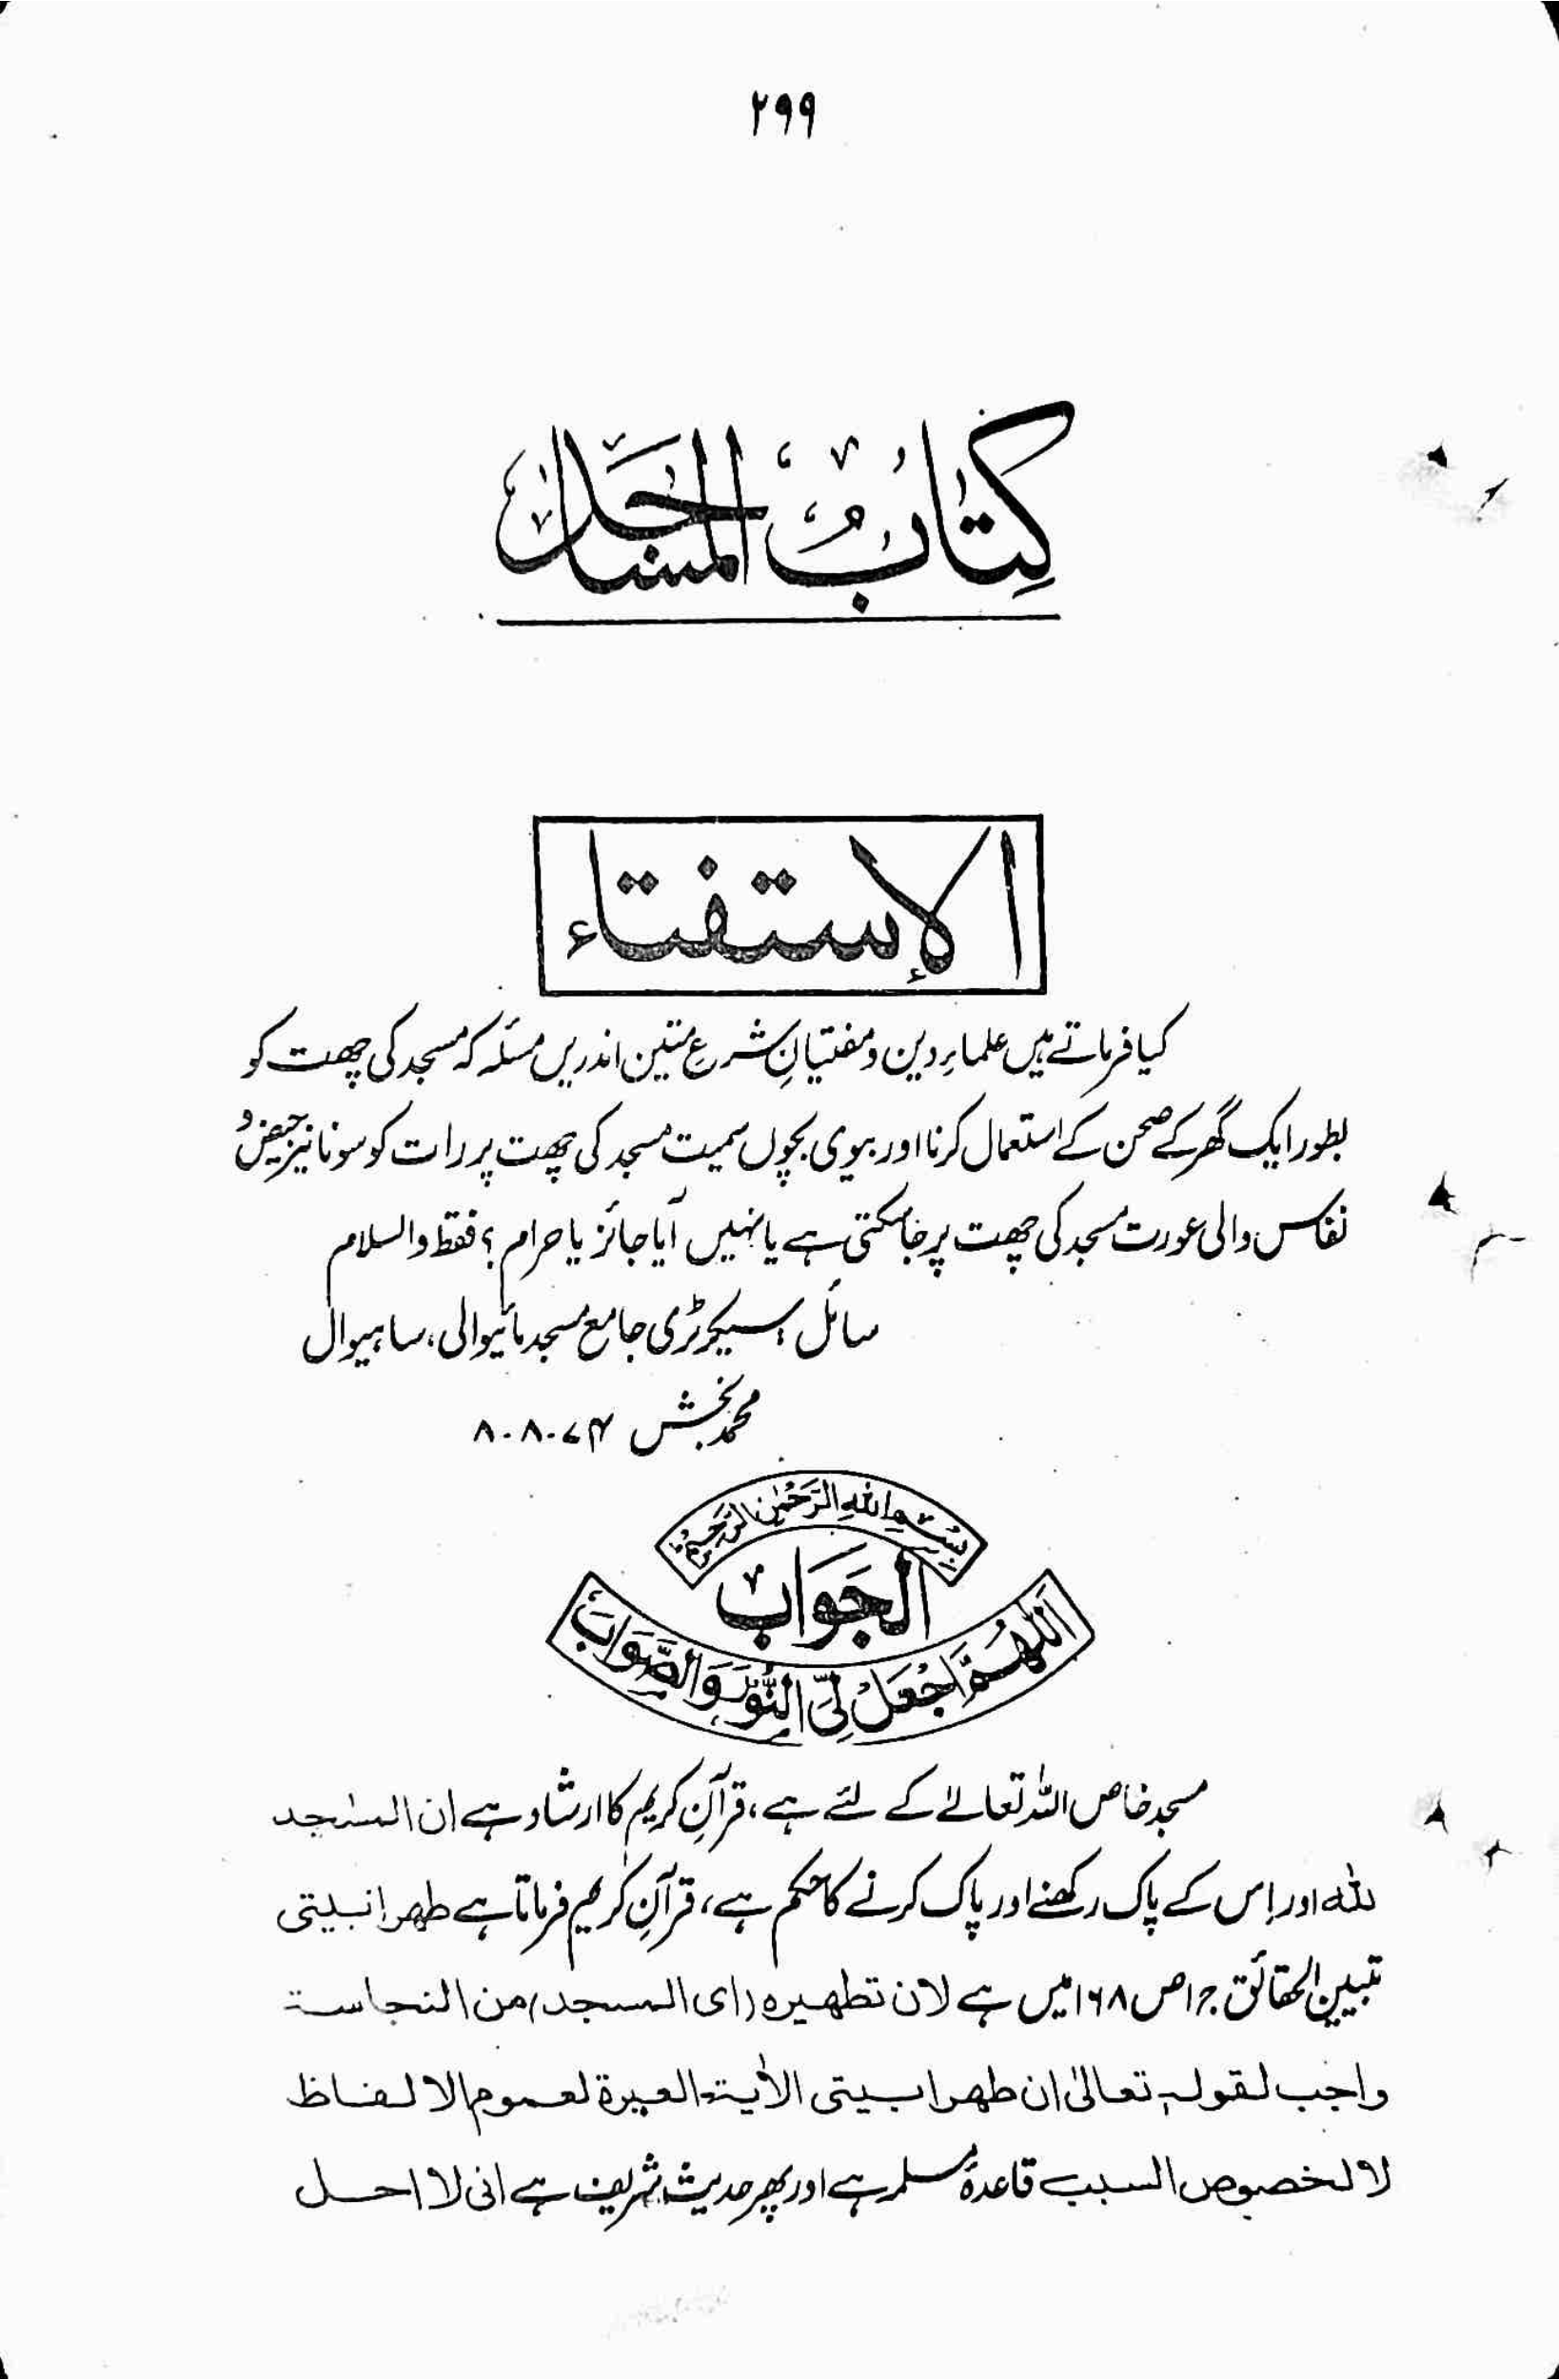 ۲۹۹
کِتَابُ المَسَاجِد
الإستفتاء
کیا فرماتے ہیں علماءِ دین و مفتیانِ شرعِ متین اندریں مسئلہ کہ مسجد کی چھت کو
بطور ایک گھر کے صحن کے استعمال کرنا اور بیوی بچوں سمیت مسجد کی چھت پر رات کو سونا نیز حیض و
نفاس والی عورت مسجد کی چھت پر جا سکتی ہے یا نہیں آیا جائز یا حرام ؟ فقط والسلام
سائل : سیکرٹری جامع مسجد مائیوالی، ساہیوال
محمد بخش ۸۔۸۔۷۴
بِسْمِ اللهِ الرَّحْمٰنِ الرَّحِیْمِ
الجَوَاب
اَللّٰهُمَّ اجْعَلْ لِیَ النُّوْرَ وَالصَّوَابَ
مسجد خاص اللہ تعالےٰ کے لئے ہے، قرآنِ کریم کا ارشاد ہے ان المسٰجد
للّٰه اور اِس کے پاک رکھنے اور پاک کرنے کا حکم ہے، قرآنِ کریم فرماتا ہے طهرا بیتی
تبیین الحقائق ج۱ ص ۱۶۸ میں ہے لان تطهیره (ای المسجد) من النجاسة
واجب لقولہٖ تعالیٰ ان طهرا بیتی الاٰیة والعبرة لعموم الالفاظ
لا لخصوص السبب قاعدۂ مسلمہ ہے اور پھر حدیث شریف ہے انی لا احل